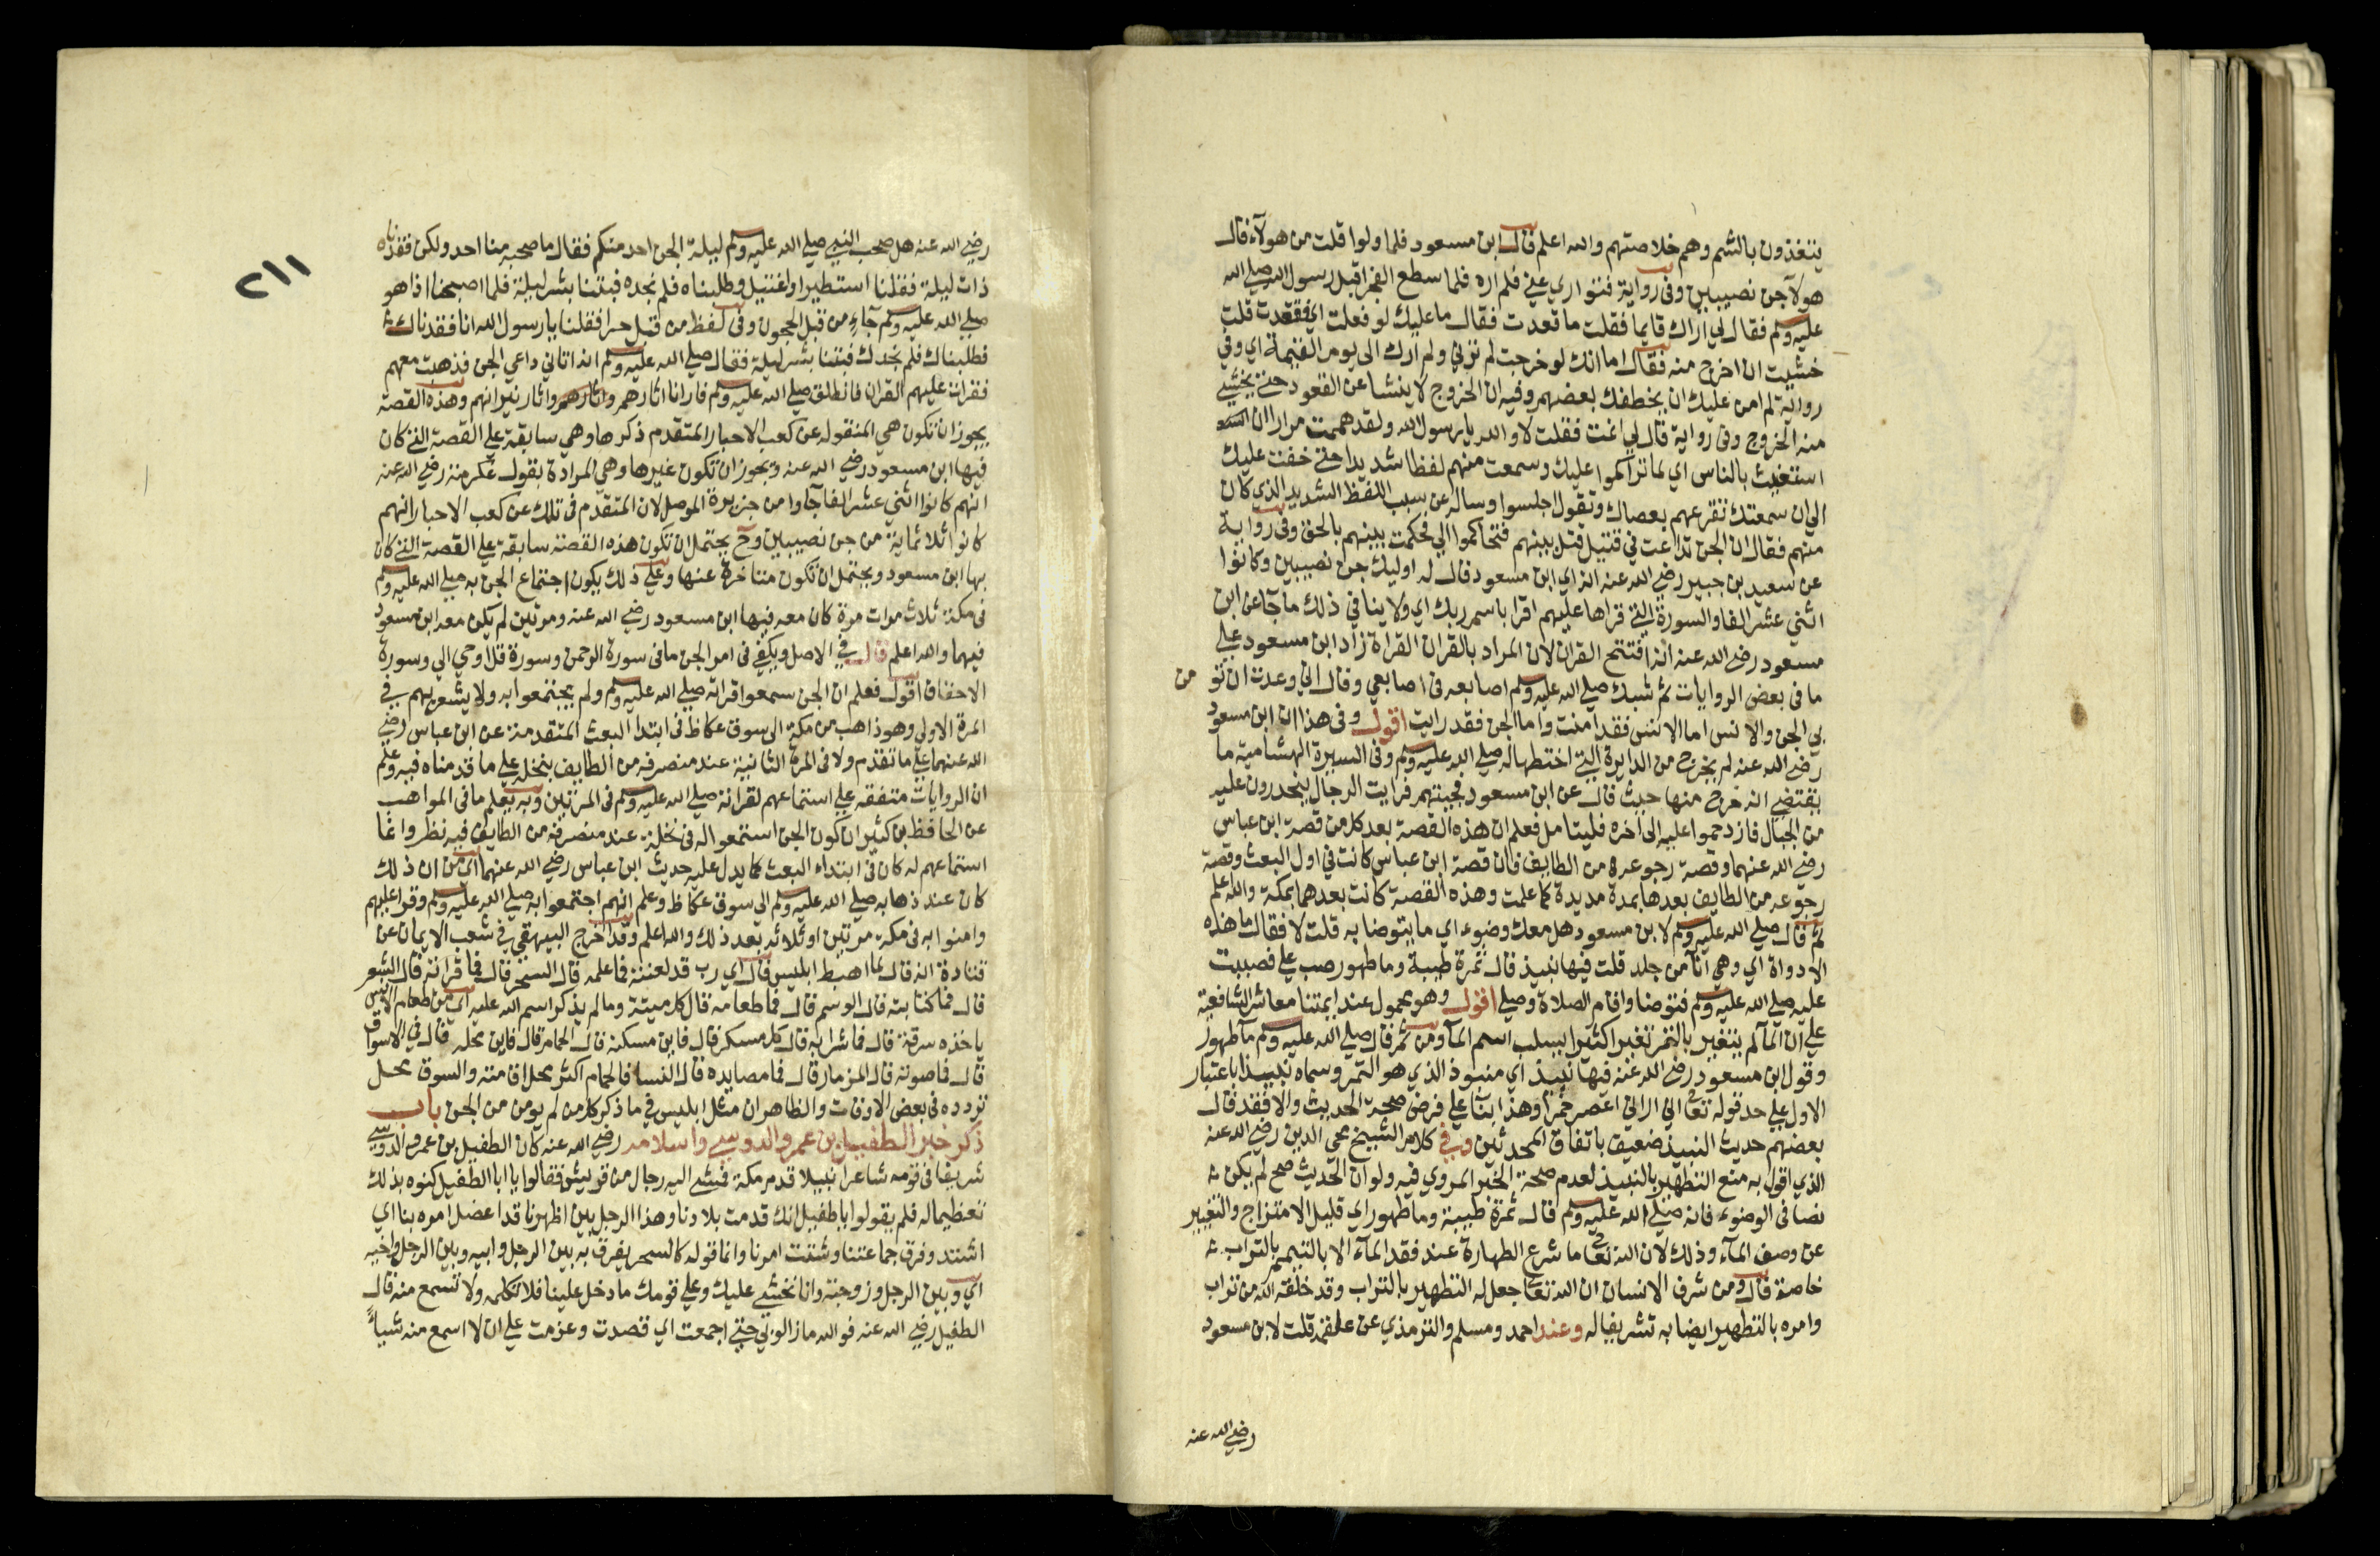 ينفذون بالشم وهم خلاصتهم والله اعلم قال ابن مسعود فلما ولوا قلت من هولآء قال
هولآ جن نصيبين وفى رواية فتوارى عني فلم اره فلما سطع الفجر اقبل رسول الله صلى الله
عليه وسلم فقال لي اراك قايما فقلت ما قعدت فقال ما عليك لو فعلت اي فقعدت قلت
خشيت ان اخرج منه فقال اما انك لو خرجت لم ترني ولم ارك الى يوم القيمة اي وفي
رواية لم امن عليك ان يخطفك بعضهم وفيه ان الخروج لا ينشا عن القعود حتى يخشى
منه الخروج وفى رواية قال لي انمت فقلت لا والله يا رسول الله ولقد هممت مرارا ان
استغيث بالناس اي لما تراكموا عليك وسمعت منهم لغطا شديدا حتى خفت عليك
الى ان سمعتك تقرعهم بعصاك وتقول اجلسوا وساله عن سبب اللغط الشديد الذي كان
منهم فقال ان الجن تداعت في قتيل قتل بينهم فتحاكموا الي فحكمت بينهم بالحق وفى رواية
عن سعيد بن جبير رضي الله عنه انه اي ابن مسعود قال له اوليك جن نصيبين وكانوا
اثني عشر الفا والسورة التي قراها عليهم اقرا باسم ربك اي ولا ينافي ذلك ما جآ عن ابن
مسعود رضي الله عنه انه افتتح القران لان المراد بالقران القراة زاد ابن مسعود على
ما فى بعض الروايات ثم شبك صلى الله عليه وسلم اصابعه فى اصابعي وقال اني وعدت ان تومن
بي الجن والانس اما الانس فقد امنت واما الجن فقد رايت اقول وفى هذا ان ابن مسعود
رضي الله عنه لم يخرج من الدايرة التي اختطها له صلى الله عليه وسلم وفى السيرة الهشامية ما
يقتضي انه خرج منها حيث قال عن ابن مسعود فجيتهم فرايت الرجال ينحدرون عليه
من الجبال فازدحموا عليه الى اخره فليتامل فعلم ان هذه القصة بعد كل من قصة ابن عباس
رضي الله عنهما وقصة رجوعه من الطايف فان قصة ابن عباس كانت في اول البعث وقصة
رجوعه من الطايف بعدها بمدة مديدة كما علمت وهذه القصة كانت بعدهما بمكة والله اعلم
ثم قال صلى الله عليه وسلم لابن مسعود هل معك وضوء اي ما يتوضا به قلت لا فقال ما هذه
الادواة اي وهي انآ من جلد قلت فيها نبيذ قال تمرة طيبة وما طهور صب علي فصببت
عليه صلى الله عليه وسلم فتوضا واقام الصلاة وصلى اقول وهو محمول عند ايمتنا معاشر الشافعية
على ان المآ لم يتغير بالتمر تغيرا كثيرا يسلب اسم المآ ومن ثم قال صلى الله عليه وسلم مآ طهور
وقول ابن مسعود رضي الله عنه فيها نبيذ اي منبوذ الذي هو التمر وسماه نبيذا باعتبار
الاول على حد قوله تعالى اني اراني اعصر خمرا وهذا بنآ على فرض صحة الحديث والا فقد قال
بعضهم حديث النبيذ ضعيف باتفاق المحدثين وفي كلام الشيخ محي الدين رضي الله عنه
الذي اقول به منع التطهير بالنبيذ لعدم صحة الخبر المروي فيه ولو ان الحديث صح لم يكن
نصا فى الوضوء فانه صلى الله عليه وسلم قال ثمرة طيبة وما طهور اي قليل الامتزاج والتغيير
عن وصف المآء وذلك لان الله تعالى ما شرع الطهارة عند فقد المآء الا بالتيمم بالتراب
خاصة قال ومن شرف الانسان ان الله تعالى جعل له التطهير بالتراب وقد خلقه الله من تراب
وامره بالتطهير ايضا به تشريفا له وعند احمد ومسلم والترمذي عن علقمة قلت لابن مسعود
رضي الله عنه
٢١١
رضي الله عنه هل صحب النبي صلى الله عليه وسلم ليلة الجن احد منكم فقال ما صحبه منا احد ولكن فقدناه
ذات ليلة فقلنا استطير او اغتيل وطلبناه فلم نجده فبتنا بشر ليلة فلما اصبحنا اذا هو
صلى الله عليه وسلم جآء من قبل الحجون وفى لفظ من قبل حرا فقلنا يا رسول الله انا فقدناك
فطلبناك فلم نجدك فبتنا بشر ليلة فقال صلى الله عليه وسلم انه اتاني داعي الجن فذهبت معهم
فقرات عليهم القران فانطلق صلى الله عليه وسلم فارانا اثارهم واثار نيرانهم وهذه القصة
يجوز ان تكون هي المنقوله عن كعب الاحبار المتقدم ذكرها وهي سابقة على القصة التي كان
فيها ابن مسعود رضي الله عنه ويجوز ان تكون غيرها وهي المرادة بقول عكرمة رضي الله عنه
انهم كانوا اثني عشر الفا جآوا من جزيرة الموصل لان المتقدم فى تلك عن كعب الاحبار انهم
كانوا ثلاثماية من جن نصيبين وح يحتمل ان تكون هذه القصة سابقة على القصة التي كان
بها ابن مسعود ويحتمل ان تكون متاخرة عنها وعلى ذلك يكون اجتماع الجن به صلى الله عليه وسلم
فى مكة ثلاث مرات مرة كان معه فيها ابن مسعود رضي الله عنه ومرتين لم يكن معه ابن مسعود
فيهما والله اعلم قال في الاصل ويكفي فى امر الجن ما فى سورة الرحمن وسورة قل اوحي الي وسورة
الاحقاف اقول فعلم ان الجن سمعوا قراته صلى الله عليه وسلم ولم يجتمعوا به ولا يشعر بهم في
المرة الاولى وهو ذاهب من مكة الى سوق عكاظ فى ابتدا البعث المتقدمة عن ابن عباس رضي
الله عنهما على ما تقدم ولا فى المرة الثانية عند منصرفه من الطايف بنخله على ما قدمناه فيه وعلم
ان الروايات متفقه على استماعهم لقراته صلى الله عليه وسلم فى المرتين وبه يعلم ما فى المواهب
عن الحافظ بن كثير ان كون الجن استمعوا له فى نخلة عند منصرفه من الطايف فيه نظر وانما
استماعهم له كان فى ابتداء البعث كما يدل عليه حديث ابن عباس رضي الله عنهما اي من ان ذلك
كان عند ذهابه صلى الله عليه وسلم الى سوق عكاظ وعلم انهم اجتمعوا به صلى الله عليه وسلم وقرا عليهم
وامنوا به فى مكة مرتين او ثلاثه بعد ذلك والله اعلم وقد اخرج البيهقي في شعب الايمان عن
قتادة انه قال لما اهبط ابليس قال اي رب قد لعنته فما علمه قال السحر قال فما قرانه قال الشعر
قال فما كتابته قال الوشم قال فما طعامه قال كل ميتة وما لم يذكر اسم الله عليه اي من طعام الانس
ياخذه سرقة قال فما شرابه قال كل مسكر قال فاين مسكنه قال الحمام قال فاين محله قال في الاسواق
قال فما صوته قال المزمار قال فما مصايده قال النسا فالحمام اكثر محل اقامته والسوق محل
تردده فى بعض الاوقات والظاهر ان مثل ابليس في ما ذكر كل من لم يومن من الجن باب
ذكر خبر الطفيل بن عمرو الدوسي واسلامه رضي الله عنه كان الطفيل بن عمرو الدوسي
شريفا فى قومه شاعرا نبيلا قدم مكة فمشى اليه رجال من قريش فقالوا يا ابا الطفيل كنوه بذلك
تعظيما له فلم يقولوا يا طفيل انك قدمت بلادنا وهذا الرجل بين اظهرنا قد اعضل امره بنا اي
اشتد وفرق جماعتنا وشتت امرنا وانما قوله كالسحر يفرق به بين الرجل وابيه وبين الرجل واخيه
اي وبين الرجل وزوجته وانا نخشى عليك وعلى قومك ما دخل علينا فلا تكلمه ولا تسمع منه قال
الطفيل رضي الله عنه فوالله ما زالوا بي حتى اجمعت اي قصدت وعزمت على ان لا اسمع منه شياً